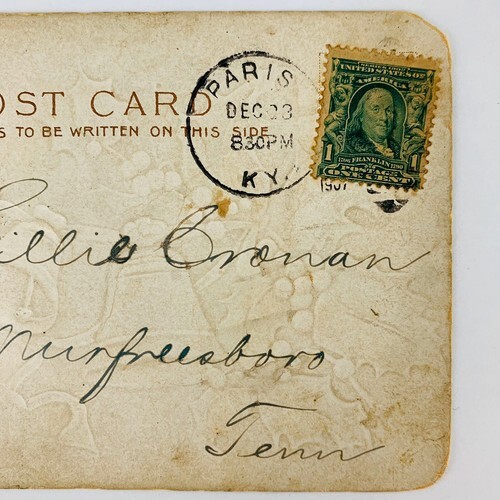 OST CARD
S TO BE WRITTEN ON THIS SIDE
PARIS
DEC 23
830PM
KY.
1907
SERIES 1902
UNITED STATES OF
AMERICA
1 1706 FRANKLIN 1790 1
POSTAGE
ONE CENT
illie Cronan
Murfreesboro
Tenn